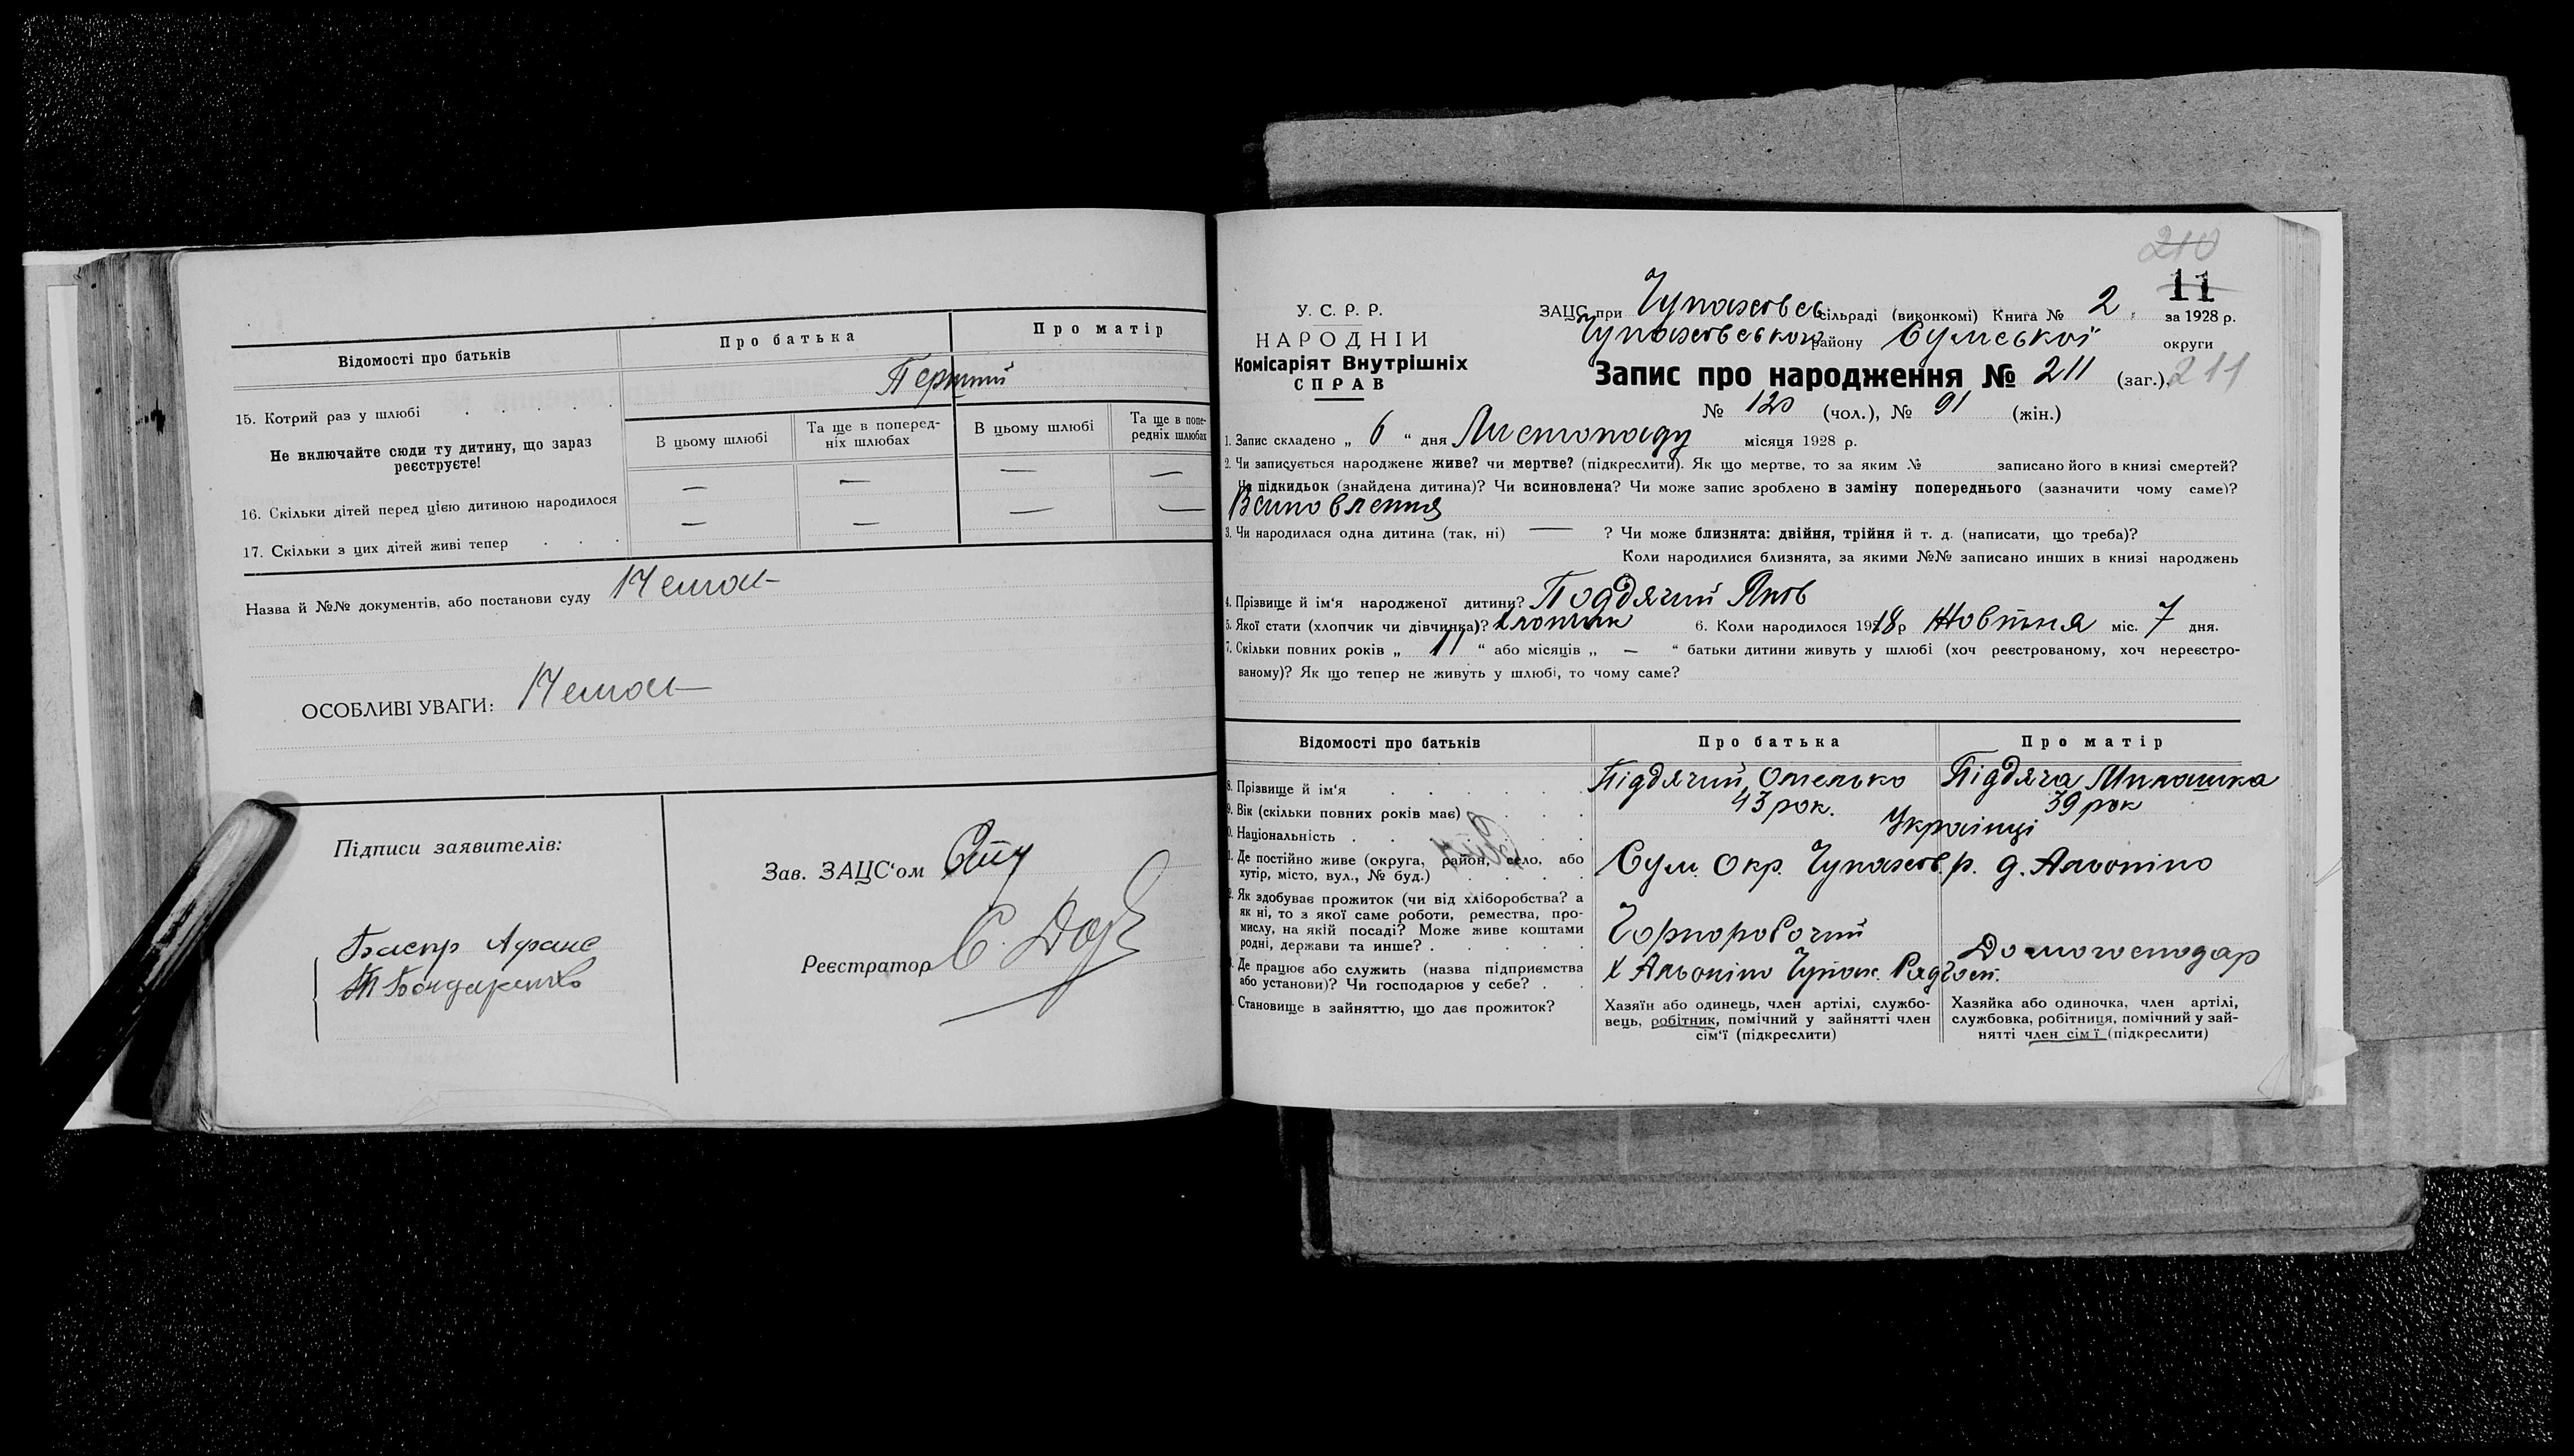 Відомості про батьків
Про батька
Про матір
Перший
15. Котрий раз у шлюбі
Не включайте сюди ту дитину, що зараз
реєструєте!
В цьому шлюбі
Та ще в поперед-
ніх шлюбах
В цьому шлюбі
Та ще в попе-
редніх шлюбах
16. Скільки дітей перед цією дитиною народилося — — — —
17. Скільки з цих дітей живі тепер — — — —
Назва й №№ документів, або постанови суду
ОСОБЛИВІ УВАГИ:
Підписи заявителів:
Бондаренко
Зав. ЗАЦС'ом
Реєстратор
210
11
У. С. Р. Р.
НАРОДНІЙ
Комісаріят Внутрішніх
СПРАВ
ЗАЦС при Чупахівсь сільраді (виконкомі) Книга № 2 за 1928 р.
Чупахівського району Сумської округи
Запис про народження № 211 (заг.), 211
№ 120 (чол.), № 91 (жін.)
1. Запис складено „ 6 “ дня Листопаду місяця 1928 р.
2. Чи записується народжене живе? чи мертве? (підкреслити). Як що мертве, то за яким № записано його в книзі смертей?
Чи підкидьок (знайдена дитина)? Чи всиновлена? Чи може запис зроблено в заміну попереднього (зазначити чому саме)?
Всиновлення
3. Чи народилася одна дитина (так, ні) — ? Чи може близнята: двійня, трійня й т. д. (написати, що треба)?
Коли народилися близнята, за якими №№ записано инших в книзі народжень
4. Прізвище й ім'я народженої дитини? Подячий Яков
5. Якої стати (хлопчик чи дівчинка)? Хлопчик 6. Коли народилося 1918 р Жовтня міс. 7 дня.
7. Скільки повних років „ 11 “ або місяців „ — “ батьки дитини живуть у шлюбі (хоч реєстрованому, хоч нереєстро-
ваному)? Як що тепер не живуть у шлюбі, то чому саме?
Відомості про батьків
Про батька
Про матір
8. Прізвище й ім'я
Підячий Омелько
Підяча Милашка
9. Вік (скільки повних років має)
43 рок.
39 рок
0. Національність
Українці
1. Де постійно живе (округа, район, село, або
хутір, місто, вул., № буд.)
Сум. Окр. Чупахов. р. д. Альоніно
2. Як здобуває прожиток (чи від хліборобства? а
як ні, то з якої саме роботи, ремества, про-
мислу, на якій посаді? Може живе коштами
родні, держави та инше?
Чорноробочий
Домогосподар
Де працює або служить (назва підприємства
або установи)? Чи господарює у себе?
х Альоніно Чупах. Радгосп.
Становище в зайняттю, що дає прожиток?
Хазяїн або одинець, член артілі, службо-
вець, робітник, помічний у зайнятті член
сім'ї (підкреслити)
Хазяйка або одиночка, член артілі,
службовка, робітниця, помічний у зай-
нятті член сім'ї (підкреслити)